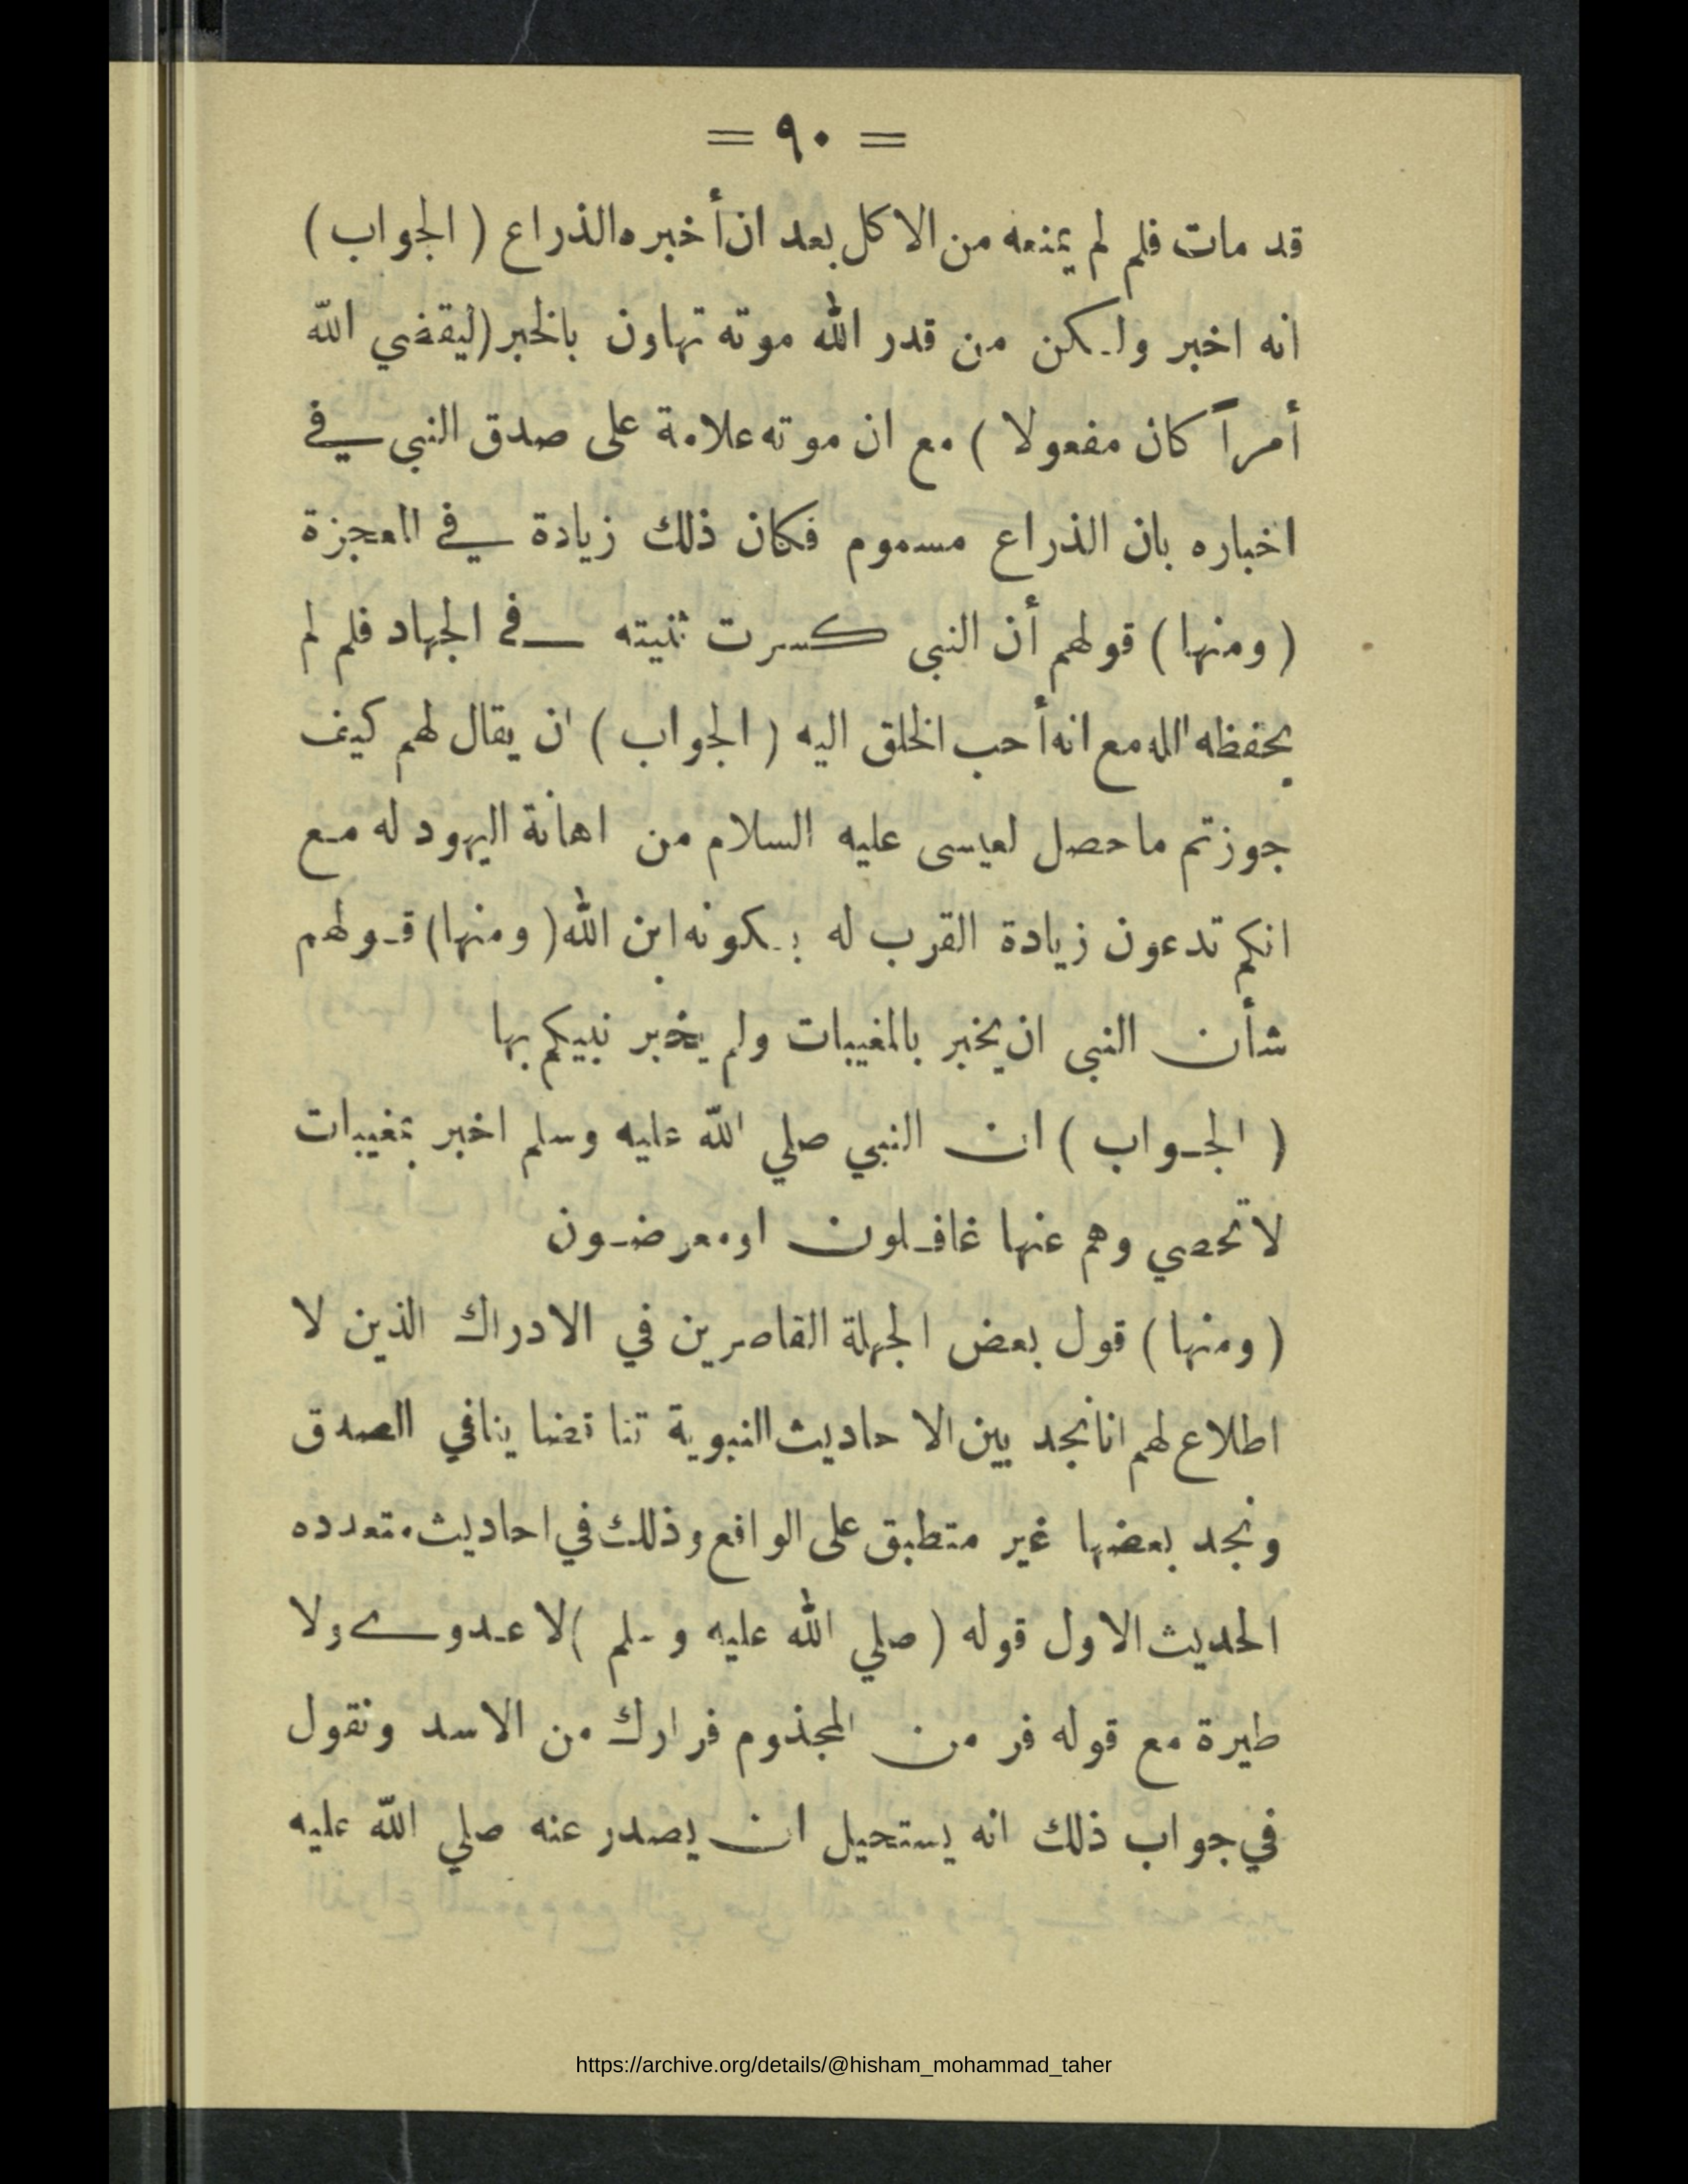 = ٩٠ =
قد مات فلم لم يمنعه من الاكل بعد ان أخبره الذراع ( الجواب )
انه اخبر ولكن من قدر الله موته تهاون بالخبر (ليقضي الله
أمراً كان مفعولا ) مع ان موته علامة على صدق النبي في
اخباره بان الذراع مسموم فكان ذلك زيادة في المعجزة
( ومنها ) قولهم أن النبي كسرت ثنيته في الجهاد فلم لم
يحفظه الله مع انه أحب الخلق اليه ( الجواب ) ان يقال لهم كيف
جوزتم ماحصل لعيسى عليه السلام من اهانة اليهود له مع
انكم تدعون زيادة القرب له بكونه ابن الله ( ومنها ) قولهم
شأن النبي ان يخبر بالمغيبات ولم يخبر نبيكم بها
( الجواب ) ان النبي صلي الله عليه وسلم اخبر بمغيبات
لا تحصي وهم عنها غافلون او معرضون
( ومنها ) قول بعض الجهلة القاصرين في الادراك الذين لا
اطلاع لهم انا نجد بين الاحاديث النبوية تناقضا ينافي الصدق
ونجد بعضها غير متطبق على الواقع وذلك في احاديث متعدده
الحديث الاول قوله ( صلي الله عليه وسلم ) لا عدوى ولا
طيرة مع قوله فر من المجذوم فرارك من الاسد ونقول
في جواب ذلك انه يستحيل ان يصدر عنه صلي الله عليه
https://archive.org/details/@hisham_mohammad_taher